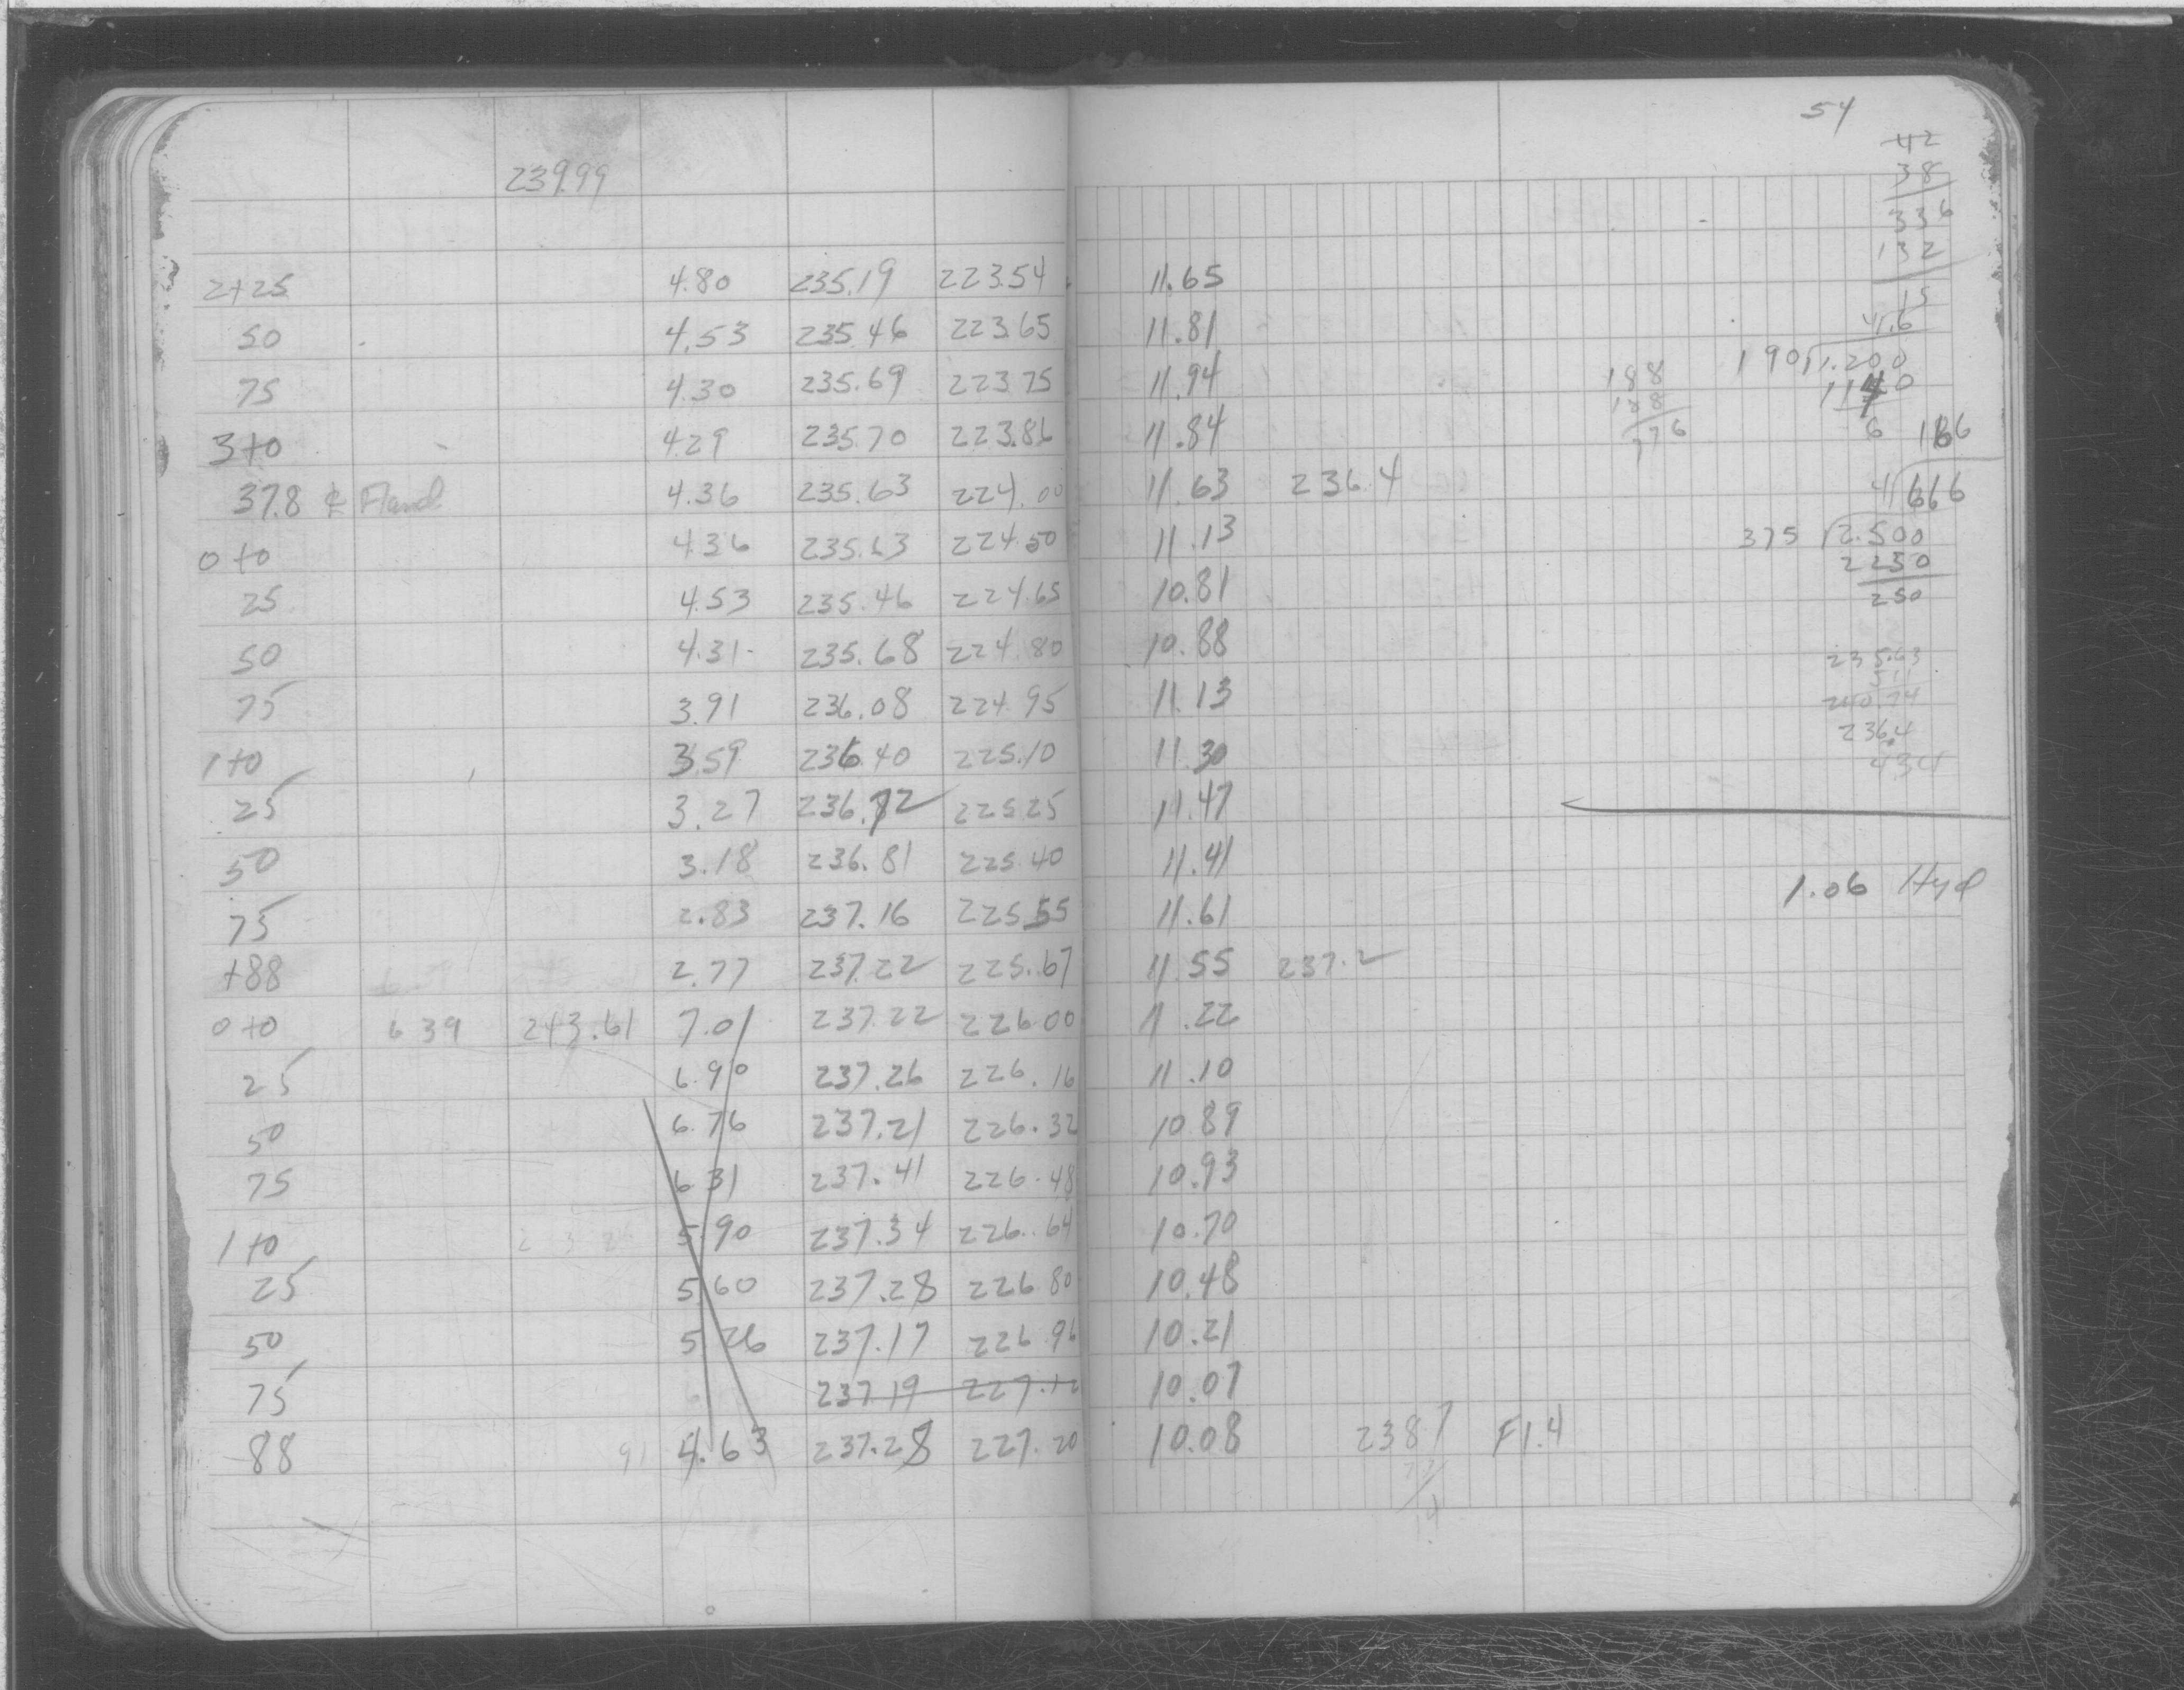 54
239.99
2+25 4.80 235.19 223.54 11.65
50 4.53 235.46 223.65 11.81
75 4.30 235.69 223.75 11.94
3+0 4.29 235.70 223.86 11.84
37.8 ℄ 4.36 235.63 224.00 11.63 236.4
0+0 4.36 235.63 224.50 11.13
25 4.53 235.46 224.65 10.81
50 4.31 235.68 224.80 10.88
75 3.91 236.08 224.95 11.13
1+0 3.59 236.40 225.10 11.30
25 3.27 236.72 225.25 11.47
50 3.18 236.81 225.40 11.41
75 2.83 237.16 225.55 11.61
+88 2.77 237.22 225.67 11.55 237.2
0+0 6.39 243.61 7.01 237.22 226.00 11.22
25 6.90 237.26 226.16 11.10
50 6.76 237.21 226.32 10.89
75 6.31 237.41 226.48 10.93
1+0 5.90 237.34 226.64 10.70
25 5.60 237.28 226.80 10.48
50 5.26 237.17 226.96 10.21
75 237.19 227.12 10.07
88 91 4.63 237.28 227.20 10.08 238.7 F1.4
42
38
336
132
15
41.6
190 1.200
1140
6
188
188
376
166
4 666
375 2.500
2250
250
235.63
511
240.74
236.4
434
1.06 Hyd